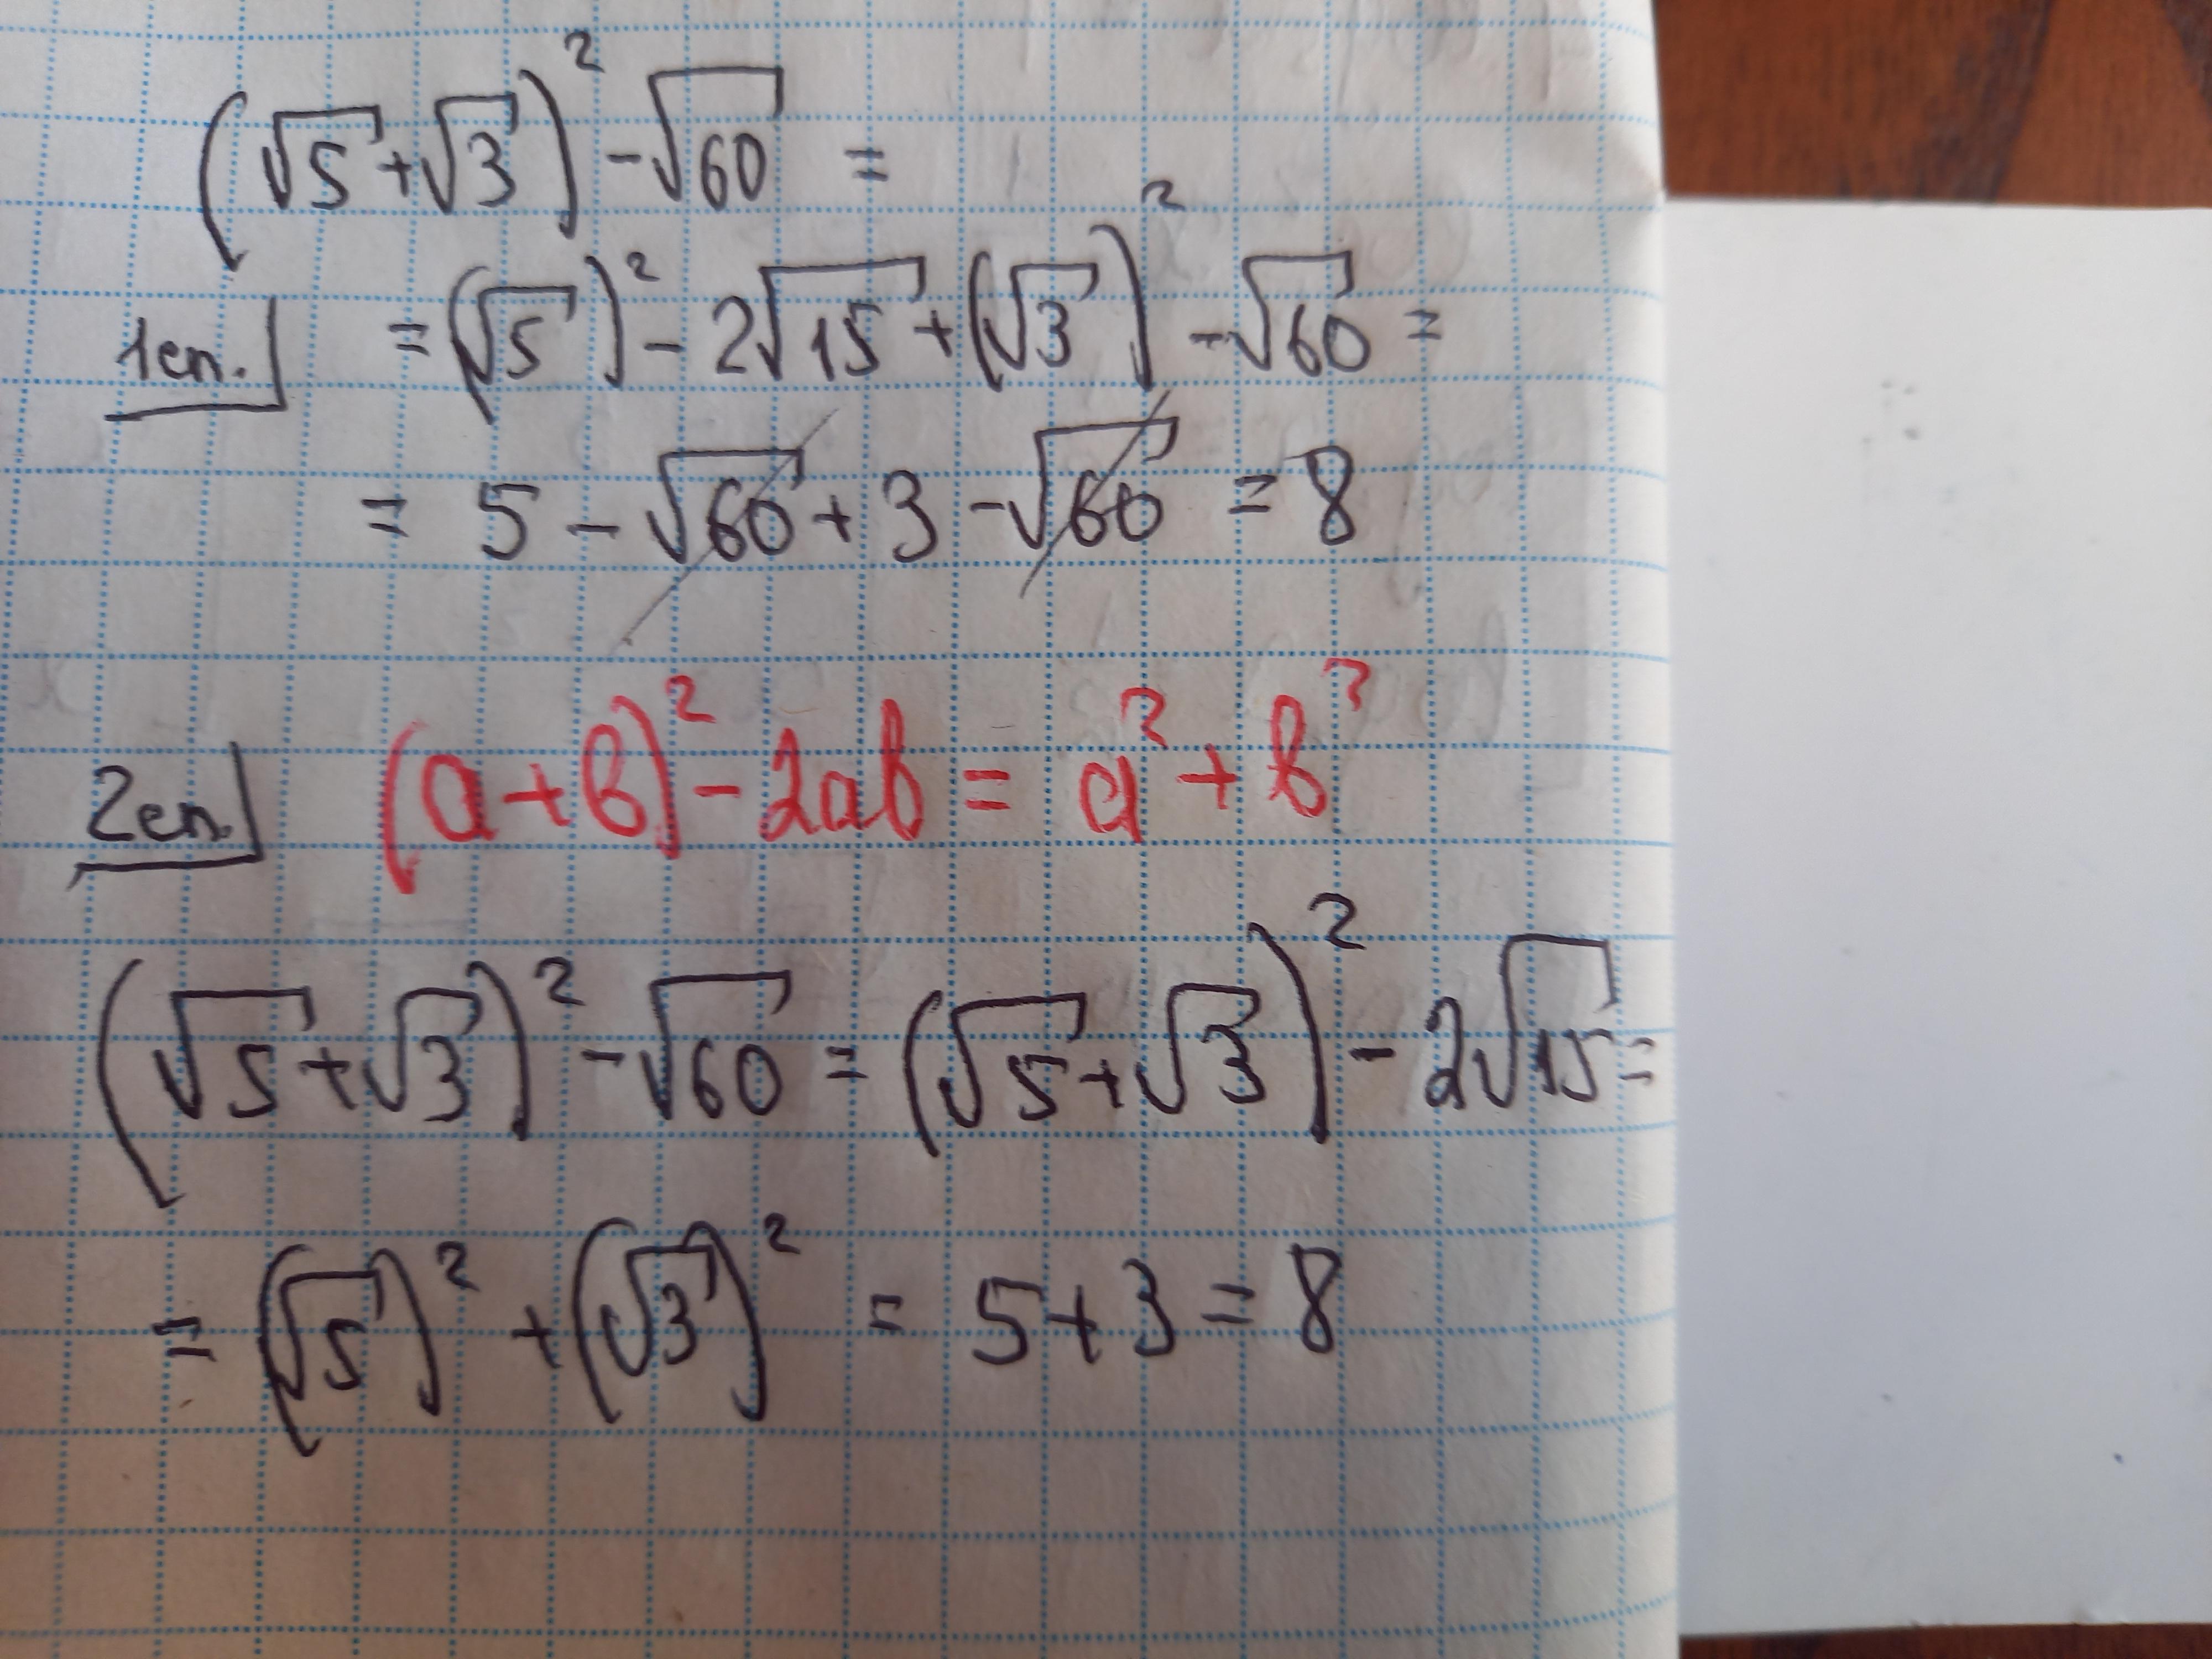 (√5+√3)² -√60 =
1сп. = (√5)² - 2√15 + (√3)² - √60 =
= 5 - √60 + 3 - √60 = 8
2сп. (a+b)² - 2ab = a² + b²
(√5+√3)² - √60 = (√5+√3)² - 2√15 =
= (√5)² + (√3)² = 5+3 = 8